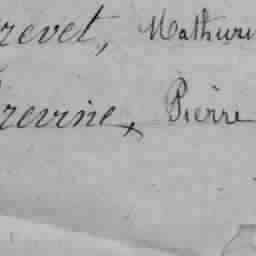 revet, Mathuri
revine, Pierre